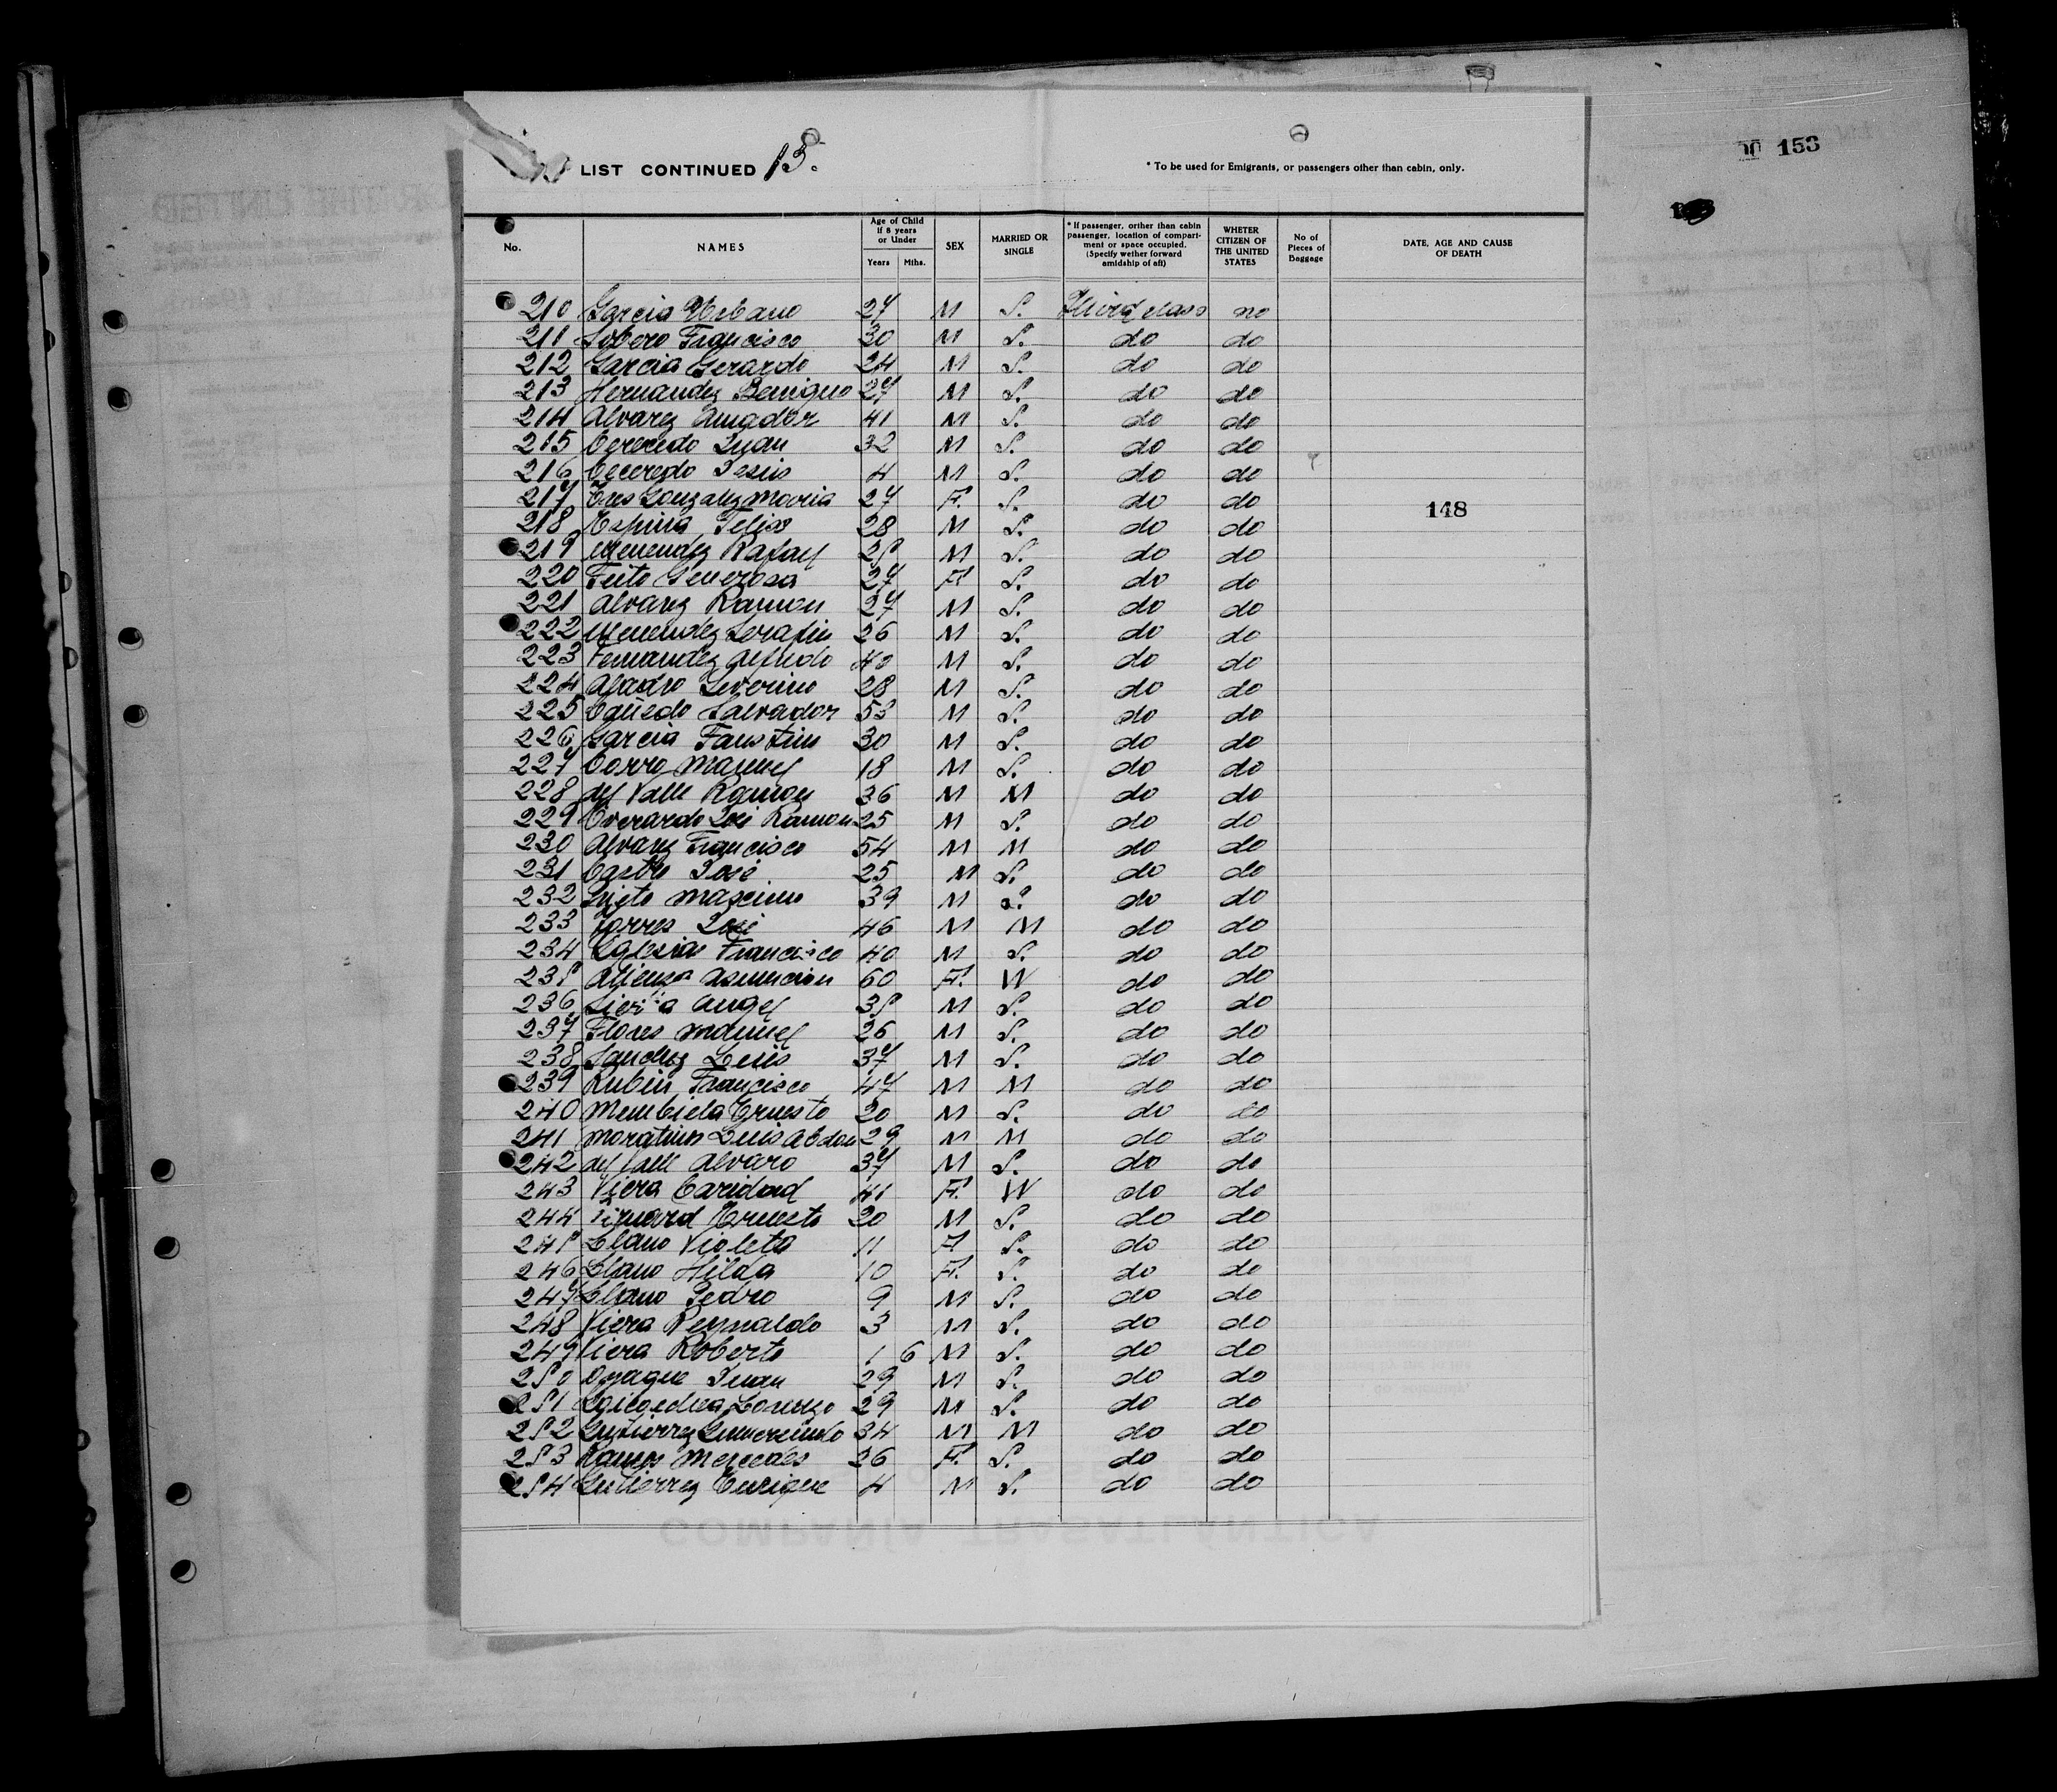 00 153
LIST CONTINUED 15.
* To be used for Emigrants, or passengers other than cabin, only.
No.
NAMES
Age of Child if 8 years or Under
Years
Mths.
SEX
MARRIED OR SINGLE
* If passenger, orther than cabin passenger, location of compartment or space occupied. (Specify wether forward amidship of aft)
WHETER CITIZEN OF THE UNITED STATES
No of Pieces of Baggage
DATE, AGE AND CAUSE OF DEATH
210 Garcia Urbano 27 M S. Third class no
211 Sobero Francisco 30 M S. do do
212 Garcia Gerardo 24 M S. do do
213 Hernandez Benigno 27 M S. do do
214 Alvarez Amador 41 M S. do do
215 Juan 32 M S. do do
216 Jesus 4 M S. do do
217 Gonzalez Maria 27 F. S. do do
148
218 Espina Felix 28 M S. do do
219 Menendez Rafael 25 M S. do do
220 Feito Generosa 27 F S. do do
221 Alvarez Ramon 27 M S. do do
222 Menendez Serafin 26 M S. do do
223 Fernandez Alfredo 40 M S. do do
224 Severino 28 M S. do do
225 Salvador 53 M S. do do
226 Garcia Faustino 30 M S. do do
227 Corro Manuel 18 M S. do do
228 del Valle Ramon 36 M M do do
229 Everardo Jose Ramon 25 M S. do do
230 Alvarez Francisco 54 M M do do
231 Castro José 25 M S. do do
232 Maximo 39 M S. do do
233 Torres José 46 M M do do
234 Iglesias Francisco 40 M S. do do
235 Atienza Asuncion 60 F. W do do
236 Angel 35 M S. do do
237 Flores Manuel 26 M S. do do
238 Sanchez Luis 37 M S. do do
239 Rubin Francisco 47 M M do do
240 Membiela Ernesto 20 M S. do do
241 Moratinos Luis Abdon 29 M M do do
242 del Valle Alvaro 37 M S. do do
243 Viera Caridad 41 F. W do do
244 Ernesto 20 M S. do do
245 Llano Violeta 11 F S. do do
246 Llano Hilda 10 F. S. do do
247 Llano Pedro 9 M S. do do
248 Viera Reynaldo 3 M S. do do
249 Viera Roberto 1 6 M S. do do
250 Oyague Juan 29 M S. do do
251 Lorenzo 29 M S. do do
252 Gutierrez Gumersindo 34 M M do do
253 Ramos Mercedes 26 F. S. do do
254 Gutierrez Enrique 4 M S. do do